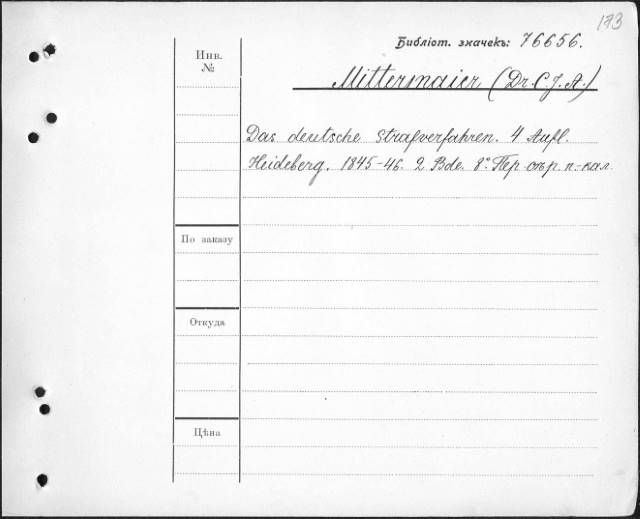 173
Библіот. значекъ: 76656.
Инв.
№
Mittermaier (Dr. C. J. A.)
Das deutsche Strafverfahren. 4 Aufl.
Heideberg. 1845-46. 2 Bde. 8° Пер. сѣр. п.-кал.
По заказу
Откуда
Цѣна